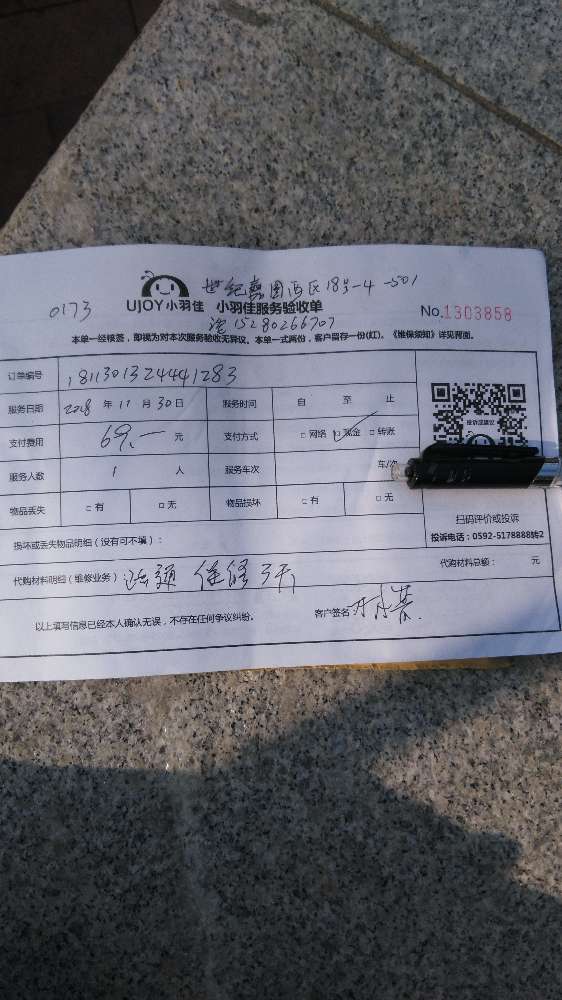 世纪嘉园西区18号-4-501
0173 UJOY小羽佳 小羽佳服务验收单 No.1303858
15280266707
本单一经核签,即视为对本次服务验收无异议。本单一式两份,客户留存一份(红)。《维保须知》详见背面。
订单编号 1811301324441283
服务日期 2018 年 11 月 30日 服务时间 自 至 止
支付费用 69.— 元 支付方式 □网络 ☑现金 □转账
服务人数 1 人 服务车次 车/次
物品丢失 □有 □无 物品损坏 □有 □无
扫码评价或投诉
投诉电话:0592-5178888转2
损坏或丢失物品明细(没有可不填):
代购材料明细(维修业务) 疏通 保修3天
代购材料总额: 元
以上填写信息已经本人确认无误,不存在任何争议纠纷。 客户签名